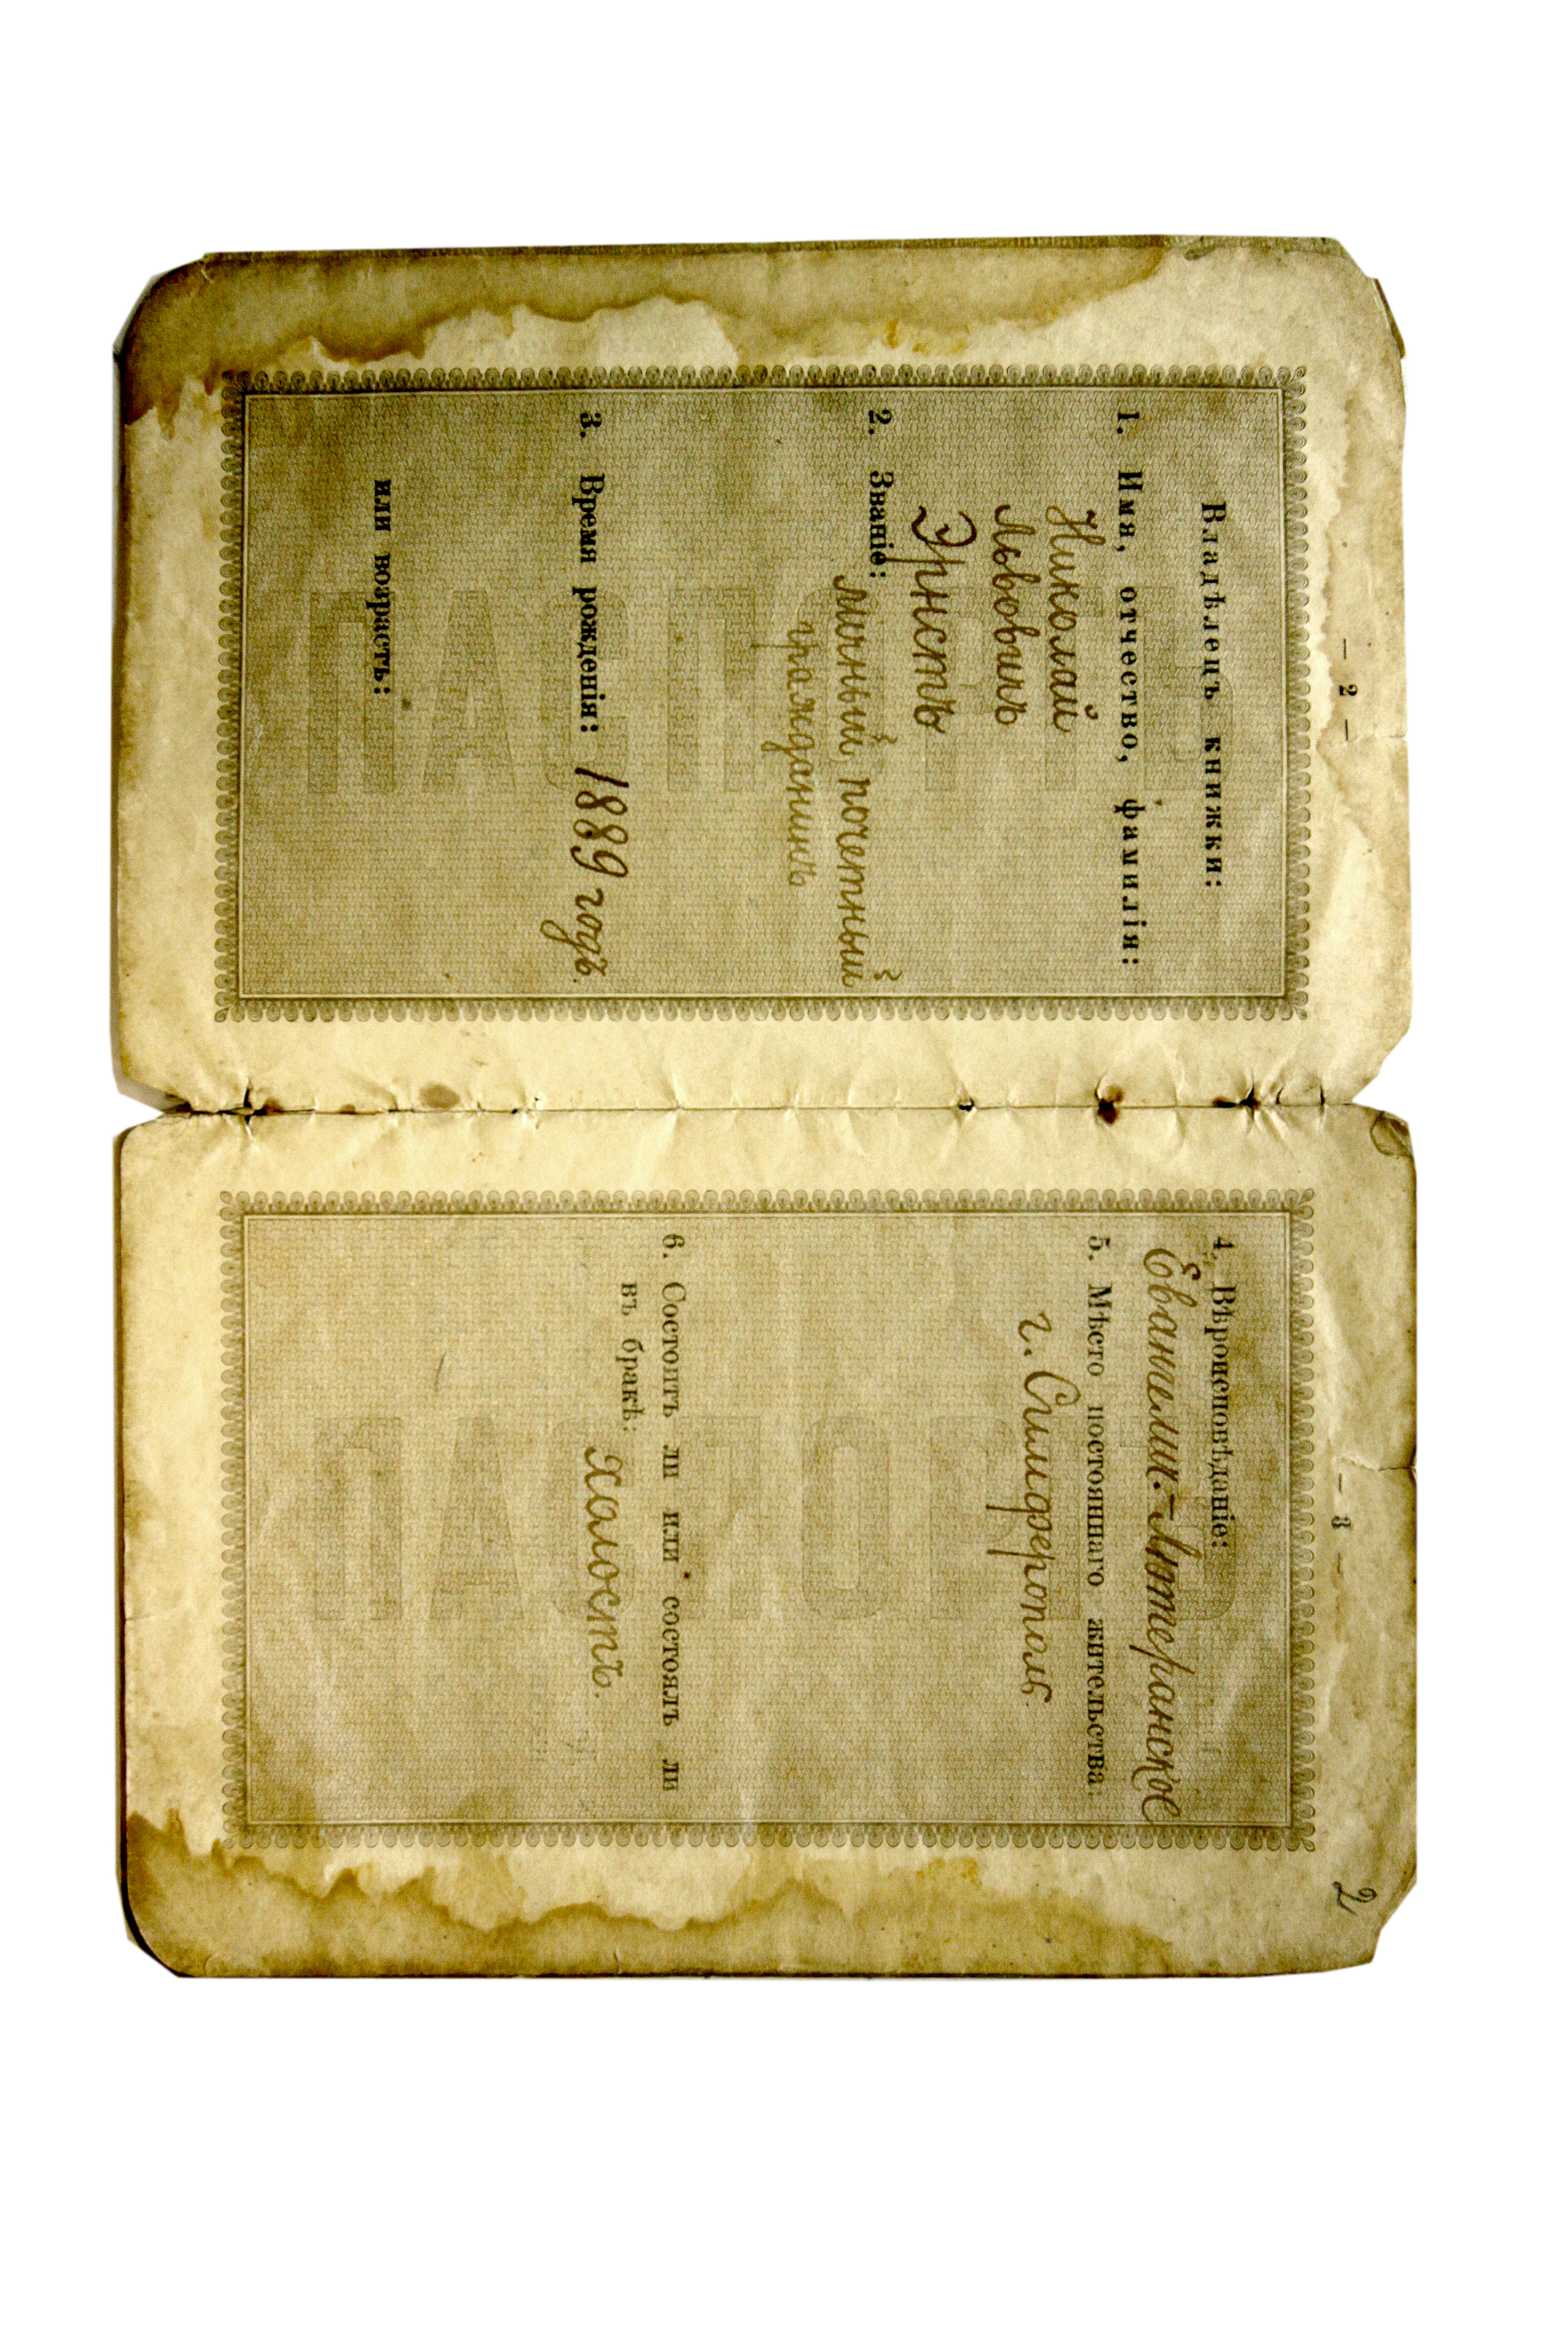 — 2 —
Владѣлецъ книжки:
1. Имя, отчество, фамилія:
Николай
Львовичъ
Эрнстъ
2. Званіе:
Личный, почетный
гражданинъ
3. Время рожденія: 1889 годъ.
или возрастъ:
ПАСПОРТЪ
— 3 —
2
4. Вѣроисповѣданіе:
Евангелик.-Лютеранское
5. Мѣсто постояннаго жительства:
г. Симферополь
6. Состоитъ ли или состоялъ ли
въ бракѣ: Холостъ.
ПАСПОРТЪ